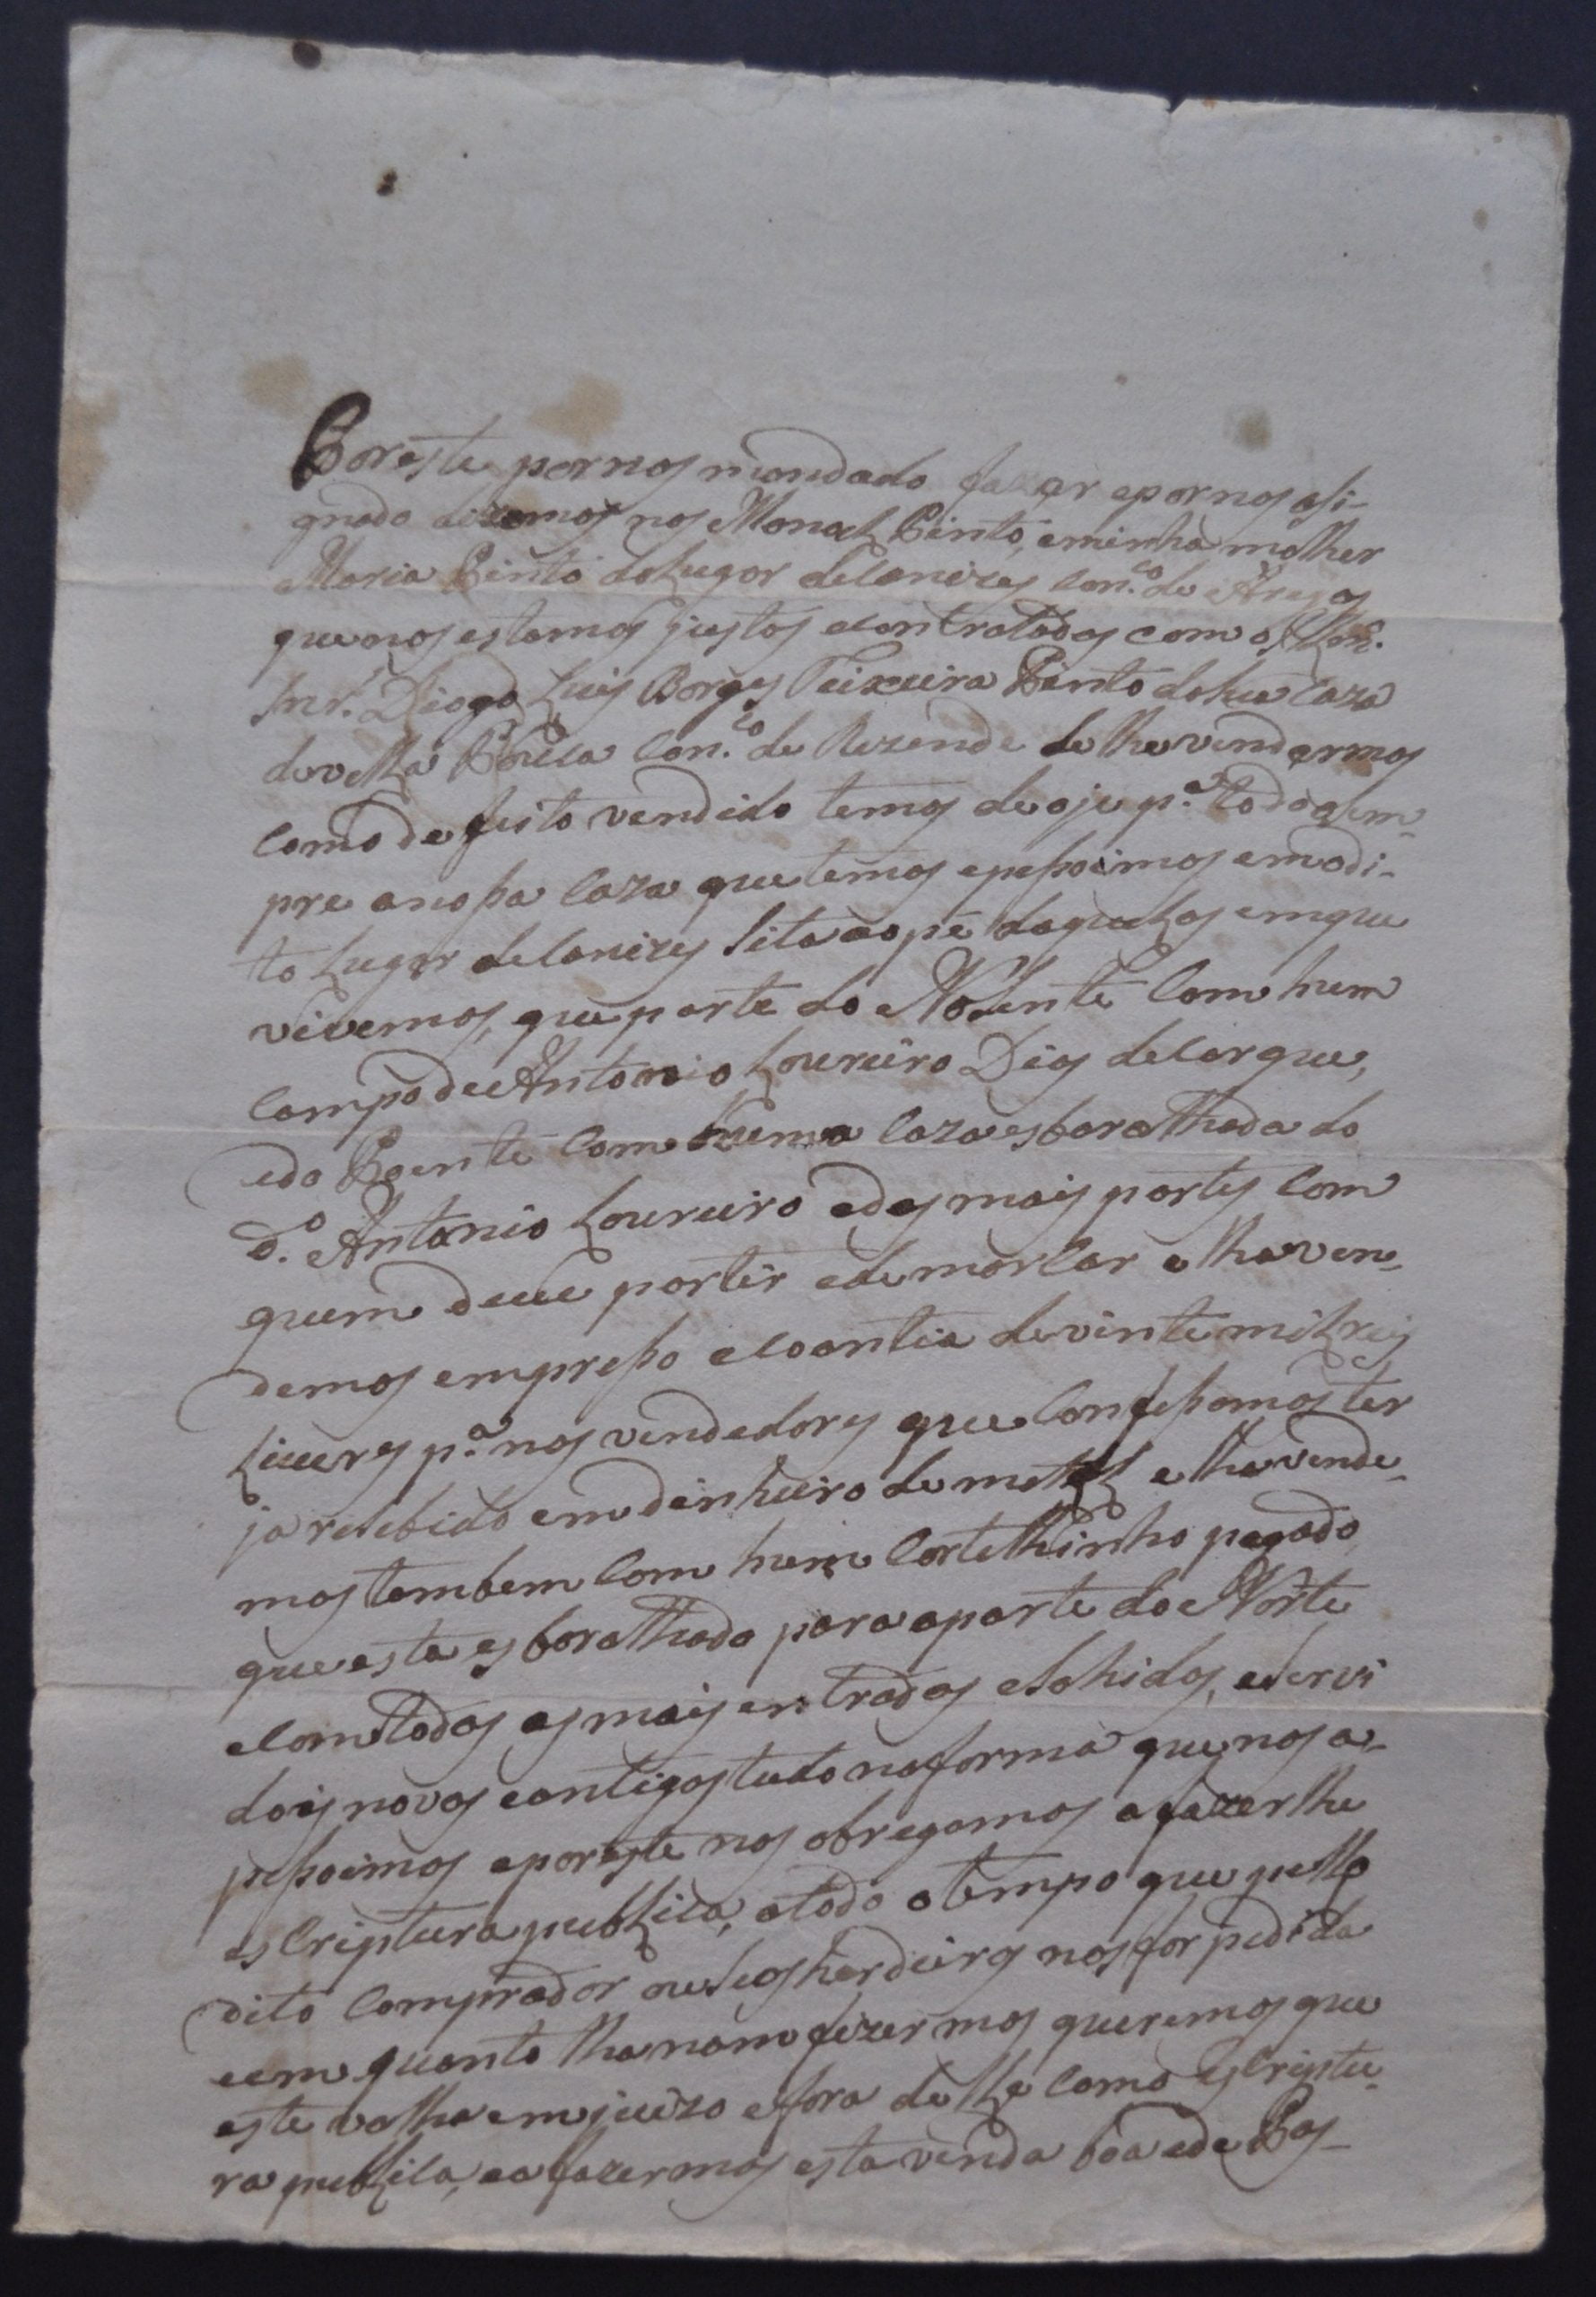 Por este por nos mandado fazer e por nos asi-
gnado dizemos nos Manoel Pinto, e minha molher
Maria Pinto do Lugar de Canizes Con.co de Aregos
que nos estamos justos e contratados com o Illm.
Snr. Diogo Luis Borges Teixeira Pinto da sua Caza
de vella Con.co de Rezende de lhe vendermos
Como de feito vendido temos de oje p.a todo sem-
pre a nossa Caza que temos e pessoimos em o di-
to Lugar de Canizes Sita ao pé daquelas em que
vivemos, que parte do Nasente Com hum
Campo de Antonio Loureiro Dias de Carque,
e do Poente Com huma Caza esboralhada do
d.o Antonio Loureiro e das mais partes Com
quem deve partir e demarCar e lha ven-
demos em presso e Coantia de vinte mil reis
Livres p.a nos vendedores que Confessamos ter
ja resebido em dinheiro de metal e lhe vende-
mos tambem Com hum Cortelhinho pegado
que esta esboralhado para a parte do Norte
e Com todas as mais entradas e Sahidas, e Servi
dois novos e antigos tudo na forma que nos a-
pessoimos e por este nos obregamos a fazer lhe
esCriptura publiCa, a todo o tempo que pello
dito Comprador ou Seos herdeiros nos for pedida
e em quanto lha nam fizermos queremos que
este valha em juizo e fora delle Como esCriptu-
ra publiCa, e a fazermos esta venda boa e de Pas-